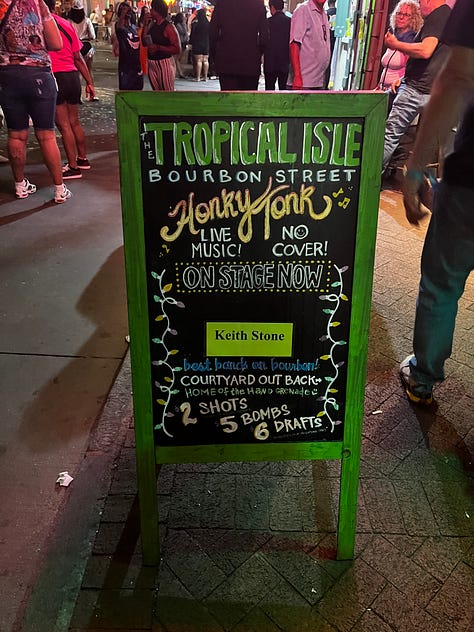 THE TROPICAL ISLE
BOURBON STREET
Honky Tonk
LIVE MUSIC!
NO COVER!
ON STAGE NOW
Keith Stone
best bands on bourbon!
COURTYARD OUT BACK
HOME of the HAND GRENADE
2 SHOTS
5 BOMBS
6 DRAFTS